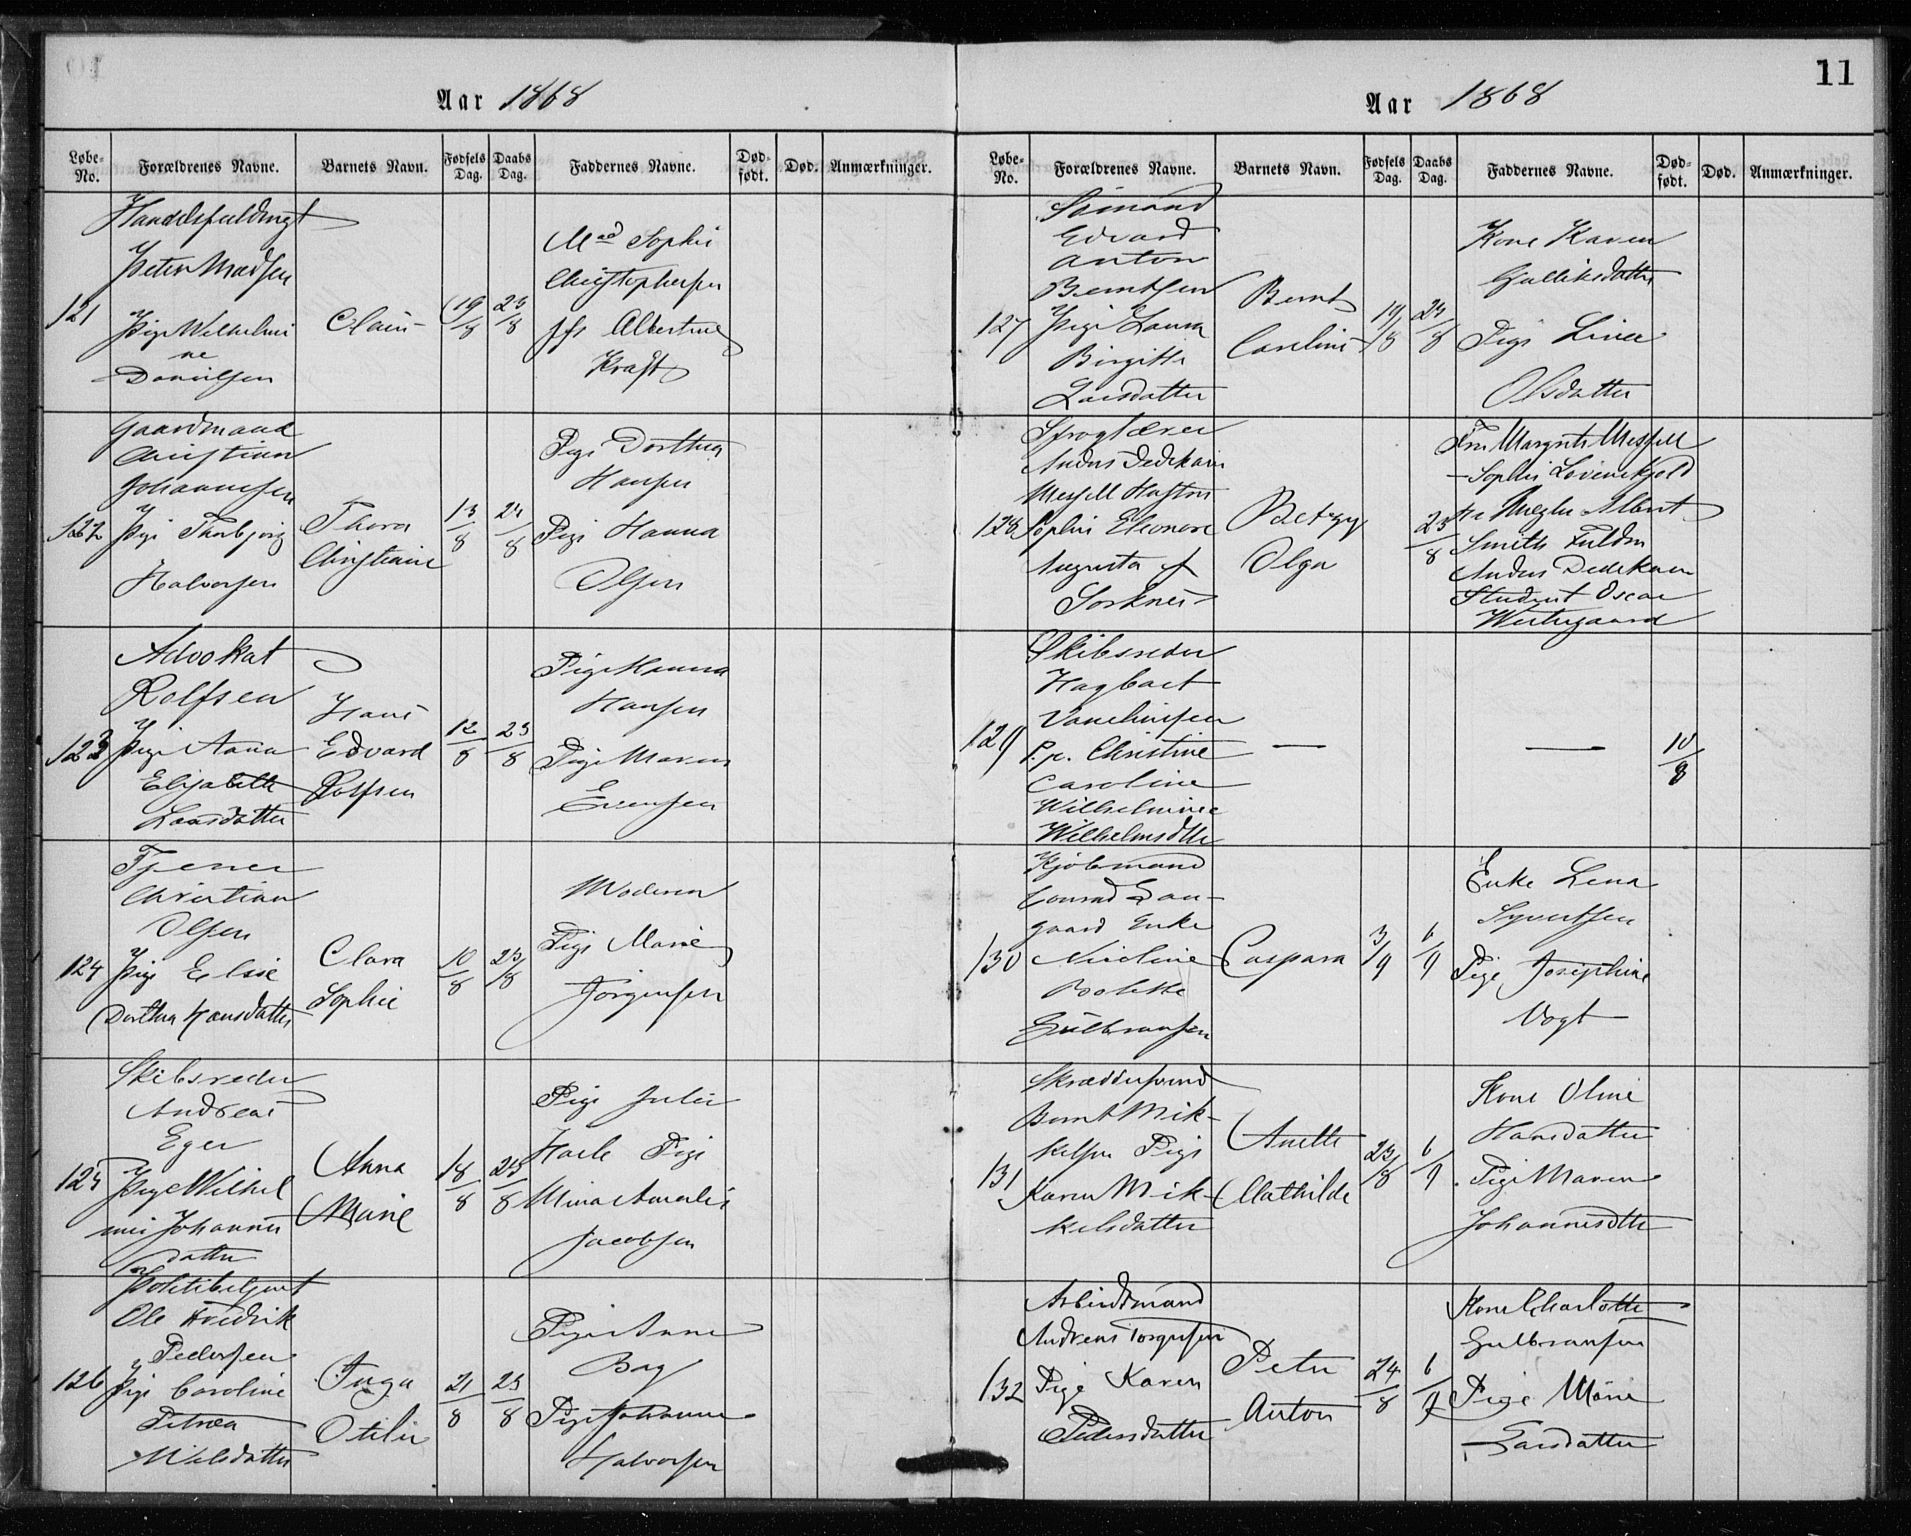 Aar 1868
Løbe-No.
Forældrenes Navne.
Barnets Navn.
Fødsels Dag.
Daabs Dag.
Faddernes Navne.
Død-født.
Død.
Anmærkninger.
121
Peter Madsen
Pige Wilhelmi
ne
Danielsen
19/8
23/8
Md Sophie
Christophersen
Albertine
Kraft
122
Gaardmand
Christian
Johannesen
Pige Thorbjørg
Halvorsen
Thora
Christiane
13/8
23/8
Pige Dorthea
Hansen
Pige Hanna
Olsen
123
Advokat
Rolfsen
Pige Anna
Elisabeth
Larsdatter
Hans
Edvard
Rolfsen
12/8
23/8
Pige Hanna
Hansen
Pige Maren
Evensen
124
Tjener
Christian
Olsen
Pige Elise
Dorthea Hansdatter
Clara
Sophie
10/8
23/8
Moderen
Pige Marie
Jørgensen
125
Skibsreder
Andreas
Eger
Pige Wilhel
mine Johannes
datter
Anna
Marie
18/8
23/8
Pige Julie
Pige
Mina Amalie
Jacobsen
126
Politibetjent
Ole Fredrik
Pedersen
Pige Caroline
Petrea
Nielsdatter
Inga
Otilie
21/8
23/8
Pige Anne
Bay
Pige Johanne
Halvorsen
11
Aar 1868
Løbe-No.
Forældrenes Navne.
Barnets Navn.
Fødsels Dag.
Daabs Dag.
Faddernes Navne.
Død-født.
Død.
Anmærkninger.
127
Sømand
Edvard
Anton
Berntsen
Pige Laura
Birgitte
Larsdatter
Bernt
Caroline
19/8
23/8
Kone Karen
Gulliksdatter
Pige Line
Olsdatter
128
Sproglærer
Anders Dedekam
Messell
Sophie Eleonore
Augusta f
Sorknes
Betzy
Olga
23/8
Margrete Messell
Sophie Løvenskjold
Albert
Smith
Anders Dedekam
Student Oscar
Westergaard
129
Skibsreder
Hagbart
P. p. Christine
Caroline
Wilhelmine
Wilhelmsdtter
—
—
10/8
130
Kjøbmand
Conrad Lan-
gaard Enke
Nicoline
Bolette
Gulbransen
Caspara
3/9
6/9
Enke Lena
Syvertsen
Pige Josephine
Vogt
131
Skræddersvend
Bernt Mik-
kelsen Pige
Karen Mik-
kelsdatter
Anette
Mathilde
23/8
6/9
Kone Oline
Hansdatter
Pige Maren
Johannesdtter
132
Arbeidsmand
Andreas Torgersen
Pige Karen
Pedersdatter
Peter
Anton
24/8
6/9
Kone Charlotte
Gulbransen
Pige Marie
Larsdatter